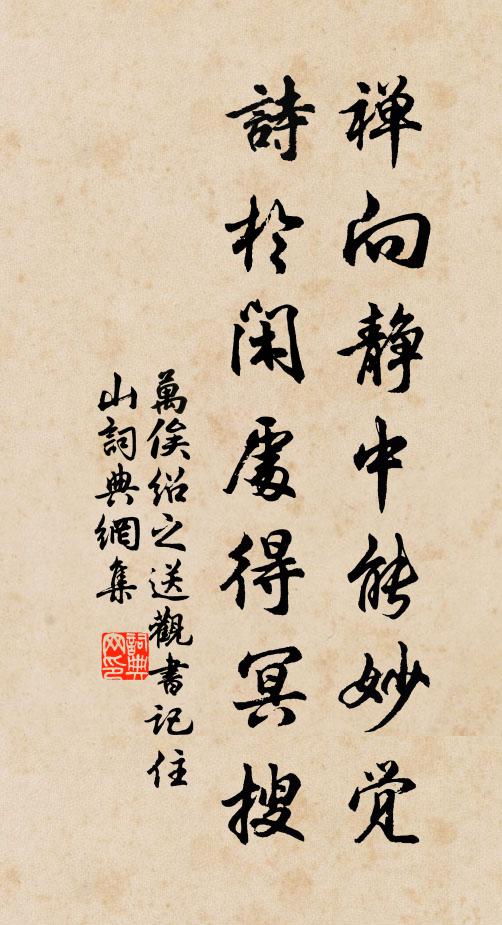 禅向静中能妙觉
詩於閑處得冥搜
萬俟紹之送觀書記住
山詞典網集
詞典
网印